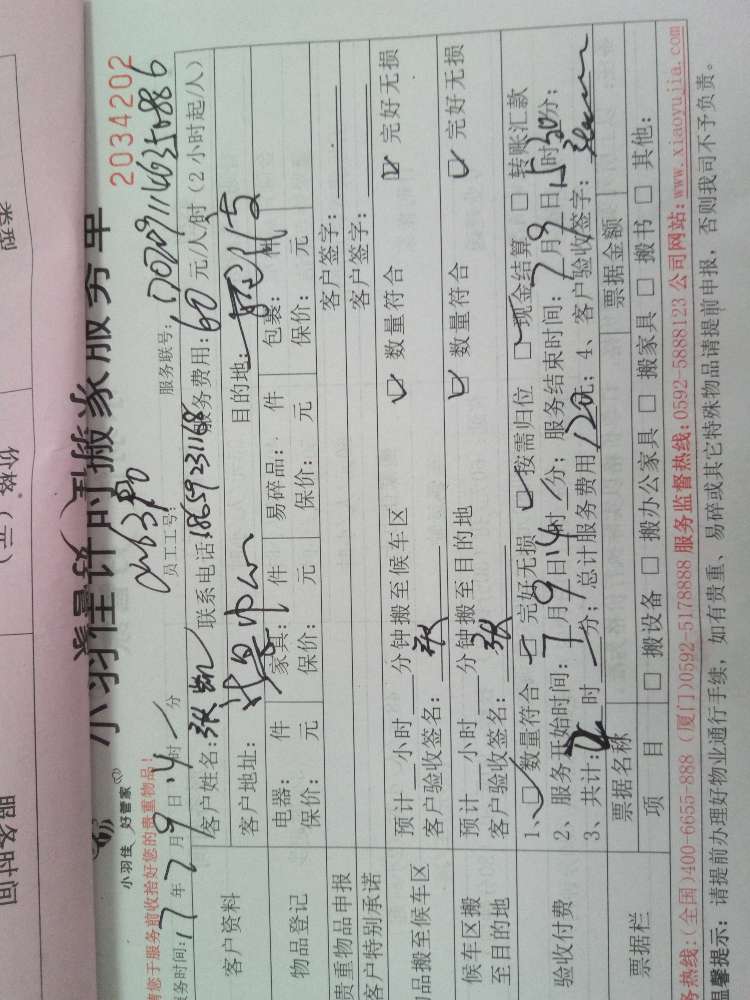 类型
价格(元)
服务时间
小羽佳计时搬家服务单
小羽佳 好管家
2034202
请您于服务前收拾好您的贵重物品!
员工工号:
服务联号:
服务时间:17年7月9日14时 分
客户资料
客户姓名:张凯
联系电话:18659231168
服务费用:60元/人/时(2小时起/人)
客户地址:
目的地:
物品登记
电器: 件 家具: 件 易碎品: 件 包裹: 件
保价: 元 保价: 元 保价: 元 保价: 元
贵重物品申报
客户签字:
客户特别承诺
客户签字:
物品搬至候车区
预计 小时 分钟搬至候车区 数量符合 完好无损
客户验收签名:张
候车区搬至目的地
预计 小时 分钟搬至目的地 数量符合 完好无损
客户验收签名:张
验收付费
1、数量符合 完好无损 按需归位 现金结算 转账汇款
2、服务开始时间:7月9日14时 分;服务结束时间:7月9日15时30分;
3、共计: 时 分;总计服务费用 元;4、客户验收签字:
票据栏
票据名称 票据金额
项目 搬设备 搬办公家具 搬家具 搬书 其他:
服务热线:(全国)400-6655-888 (厦门)0592-5178888 服务监督热线:0592-5888123 公司网站:www.xiaoyujia.com
温馨提示:请提前办理好物业通行手续,如有贵重、易碎或其它特殊物品请提前申报,否则我司不予负责。